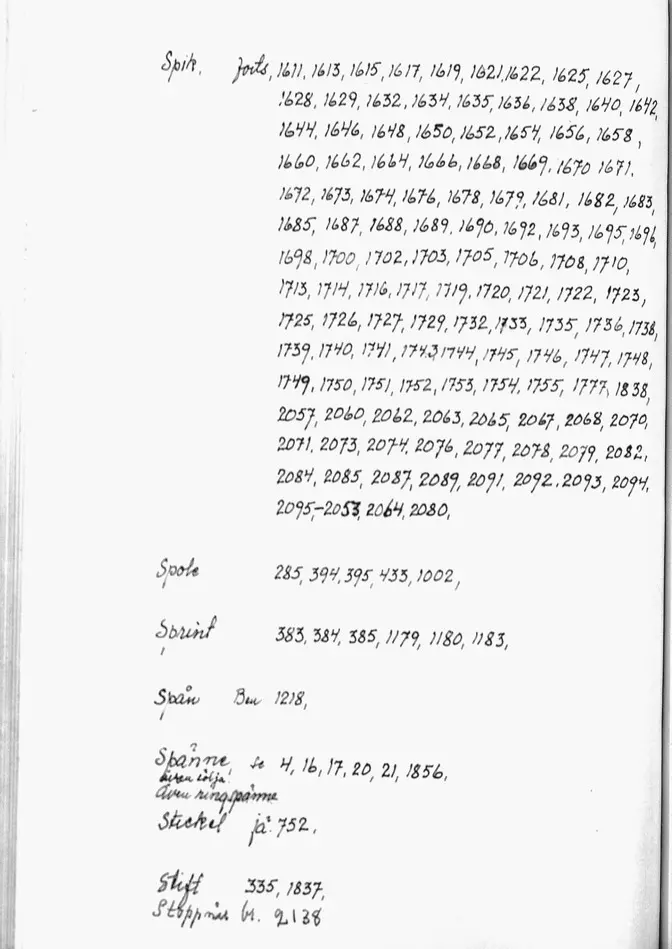 Spik, forts, 1611, 1613, 1615, 1617, 1619, 1621, 1622, 1625, 1627,
1628, 1629, 1632, 1634, 1635, 1636, 1638, 1640, 1642,
1644, 1646, 1648, 1650, 1652, 1654, 1656, 1658,
1660, 1662, 1664, 1666, 1668, 1669, 1670 1671.
1672, 1673, 1674, 1676, 1678, 1679, 1681, 1682, 1683,
1685, 1687, 1688, 1689, 1690, 1692, 1693, 1695, 1696,
1698, 1700, 1702, 1703, 1705, 1706, 1708, 1710,
1713, 1714, 1716, 1717, 1719, 1720, 1721, 1722, 1723,
1725, 1726, 1727, 1729, 1732, 1733, 1735, 1736, 1738,
1739, 1740, 1741, 1743, 1744, 1745, 1746, 1747, 1748,
1749, 1750, 1751, 1752, 1753, 1754, 1755, 1777, 1838,
2057, 2060, 2062, 2063, 2065, 2067, 2068, 2070,
2071, 2073, 2074, 2076, 2077, 2078, 2079, 2082,
2084, 2085, 2087, 2089, 2091, 2092, 2093, 2094,
2095,-2053, 2064, 2080,
Spole 285, 394, 395, 433, 1002,
Sprint 383, 384, 385, 1179, 1180, 1183,
Spån Ben 1218,
Spänne, se 4, 16, 17, 20, 21, 1856,
även sölja!
även ringspänne
Stickel jä. 752,
Stift 335, 1837,
Stoppnål br. 2138